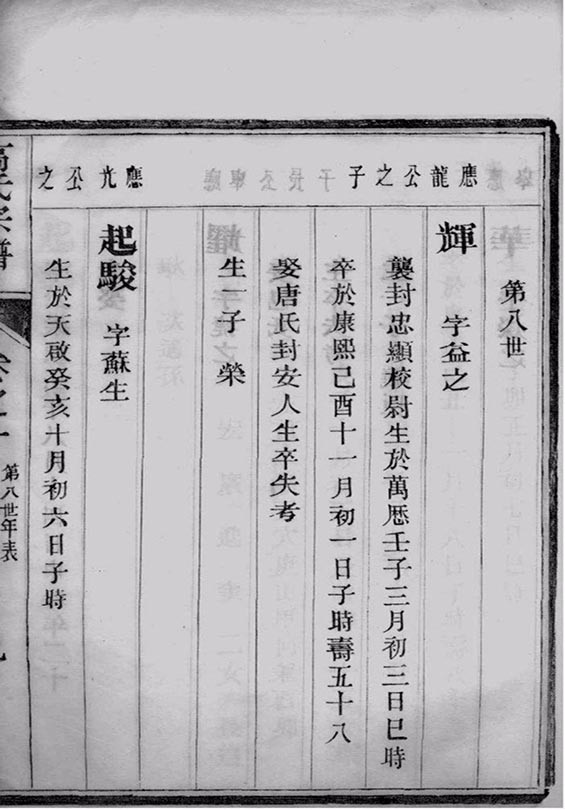 第八世
應龍公之子
輝 字益之
襲封忠顯校尉生於萬厯壬子三月初三日巳時
卒於康熙己酉十一月初一日子時壽五十八
娶唐氏封安人生卒失考
生一子榮
應光公之
起駿 字蘇生
生於天啟癸亥十月初六日子時
氏宗譜
第八世年表